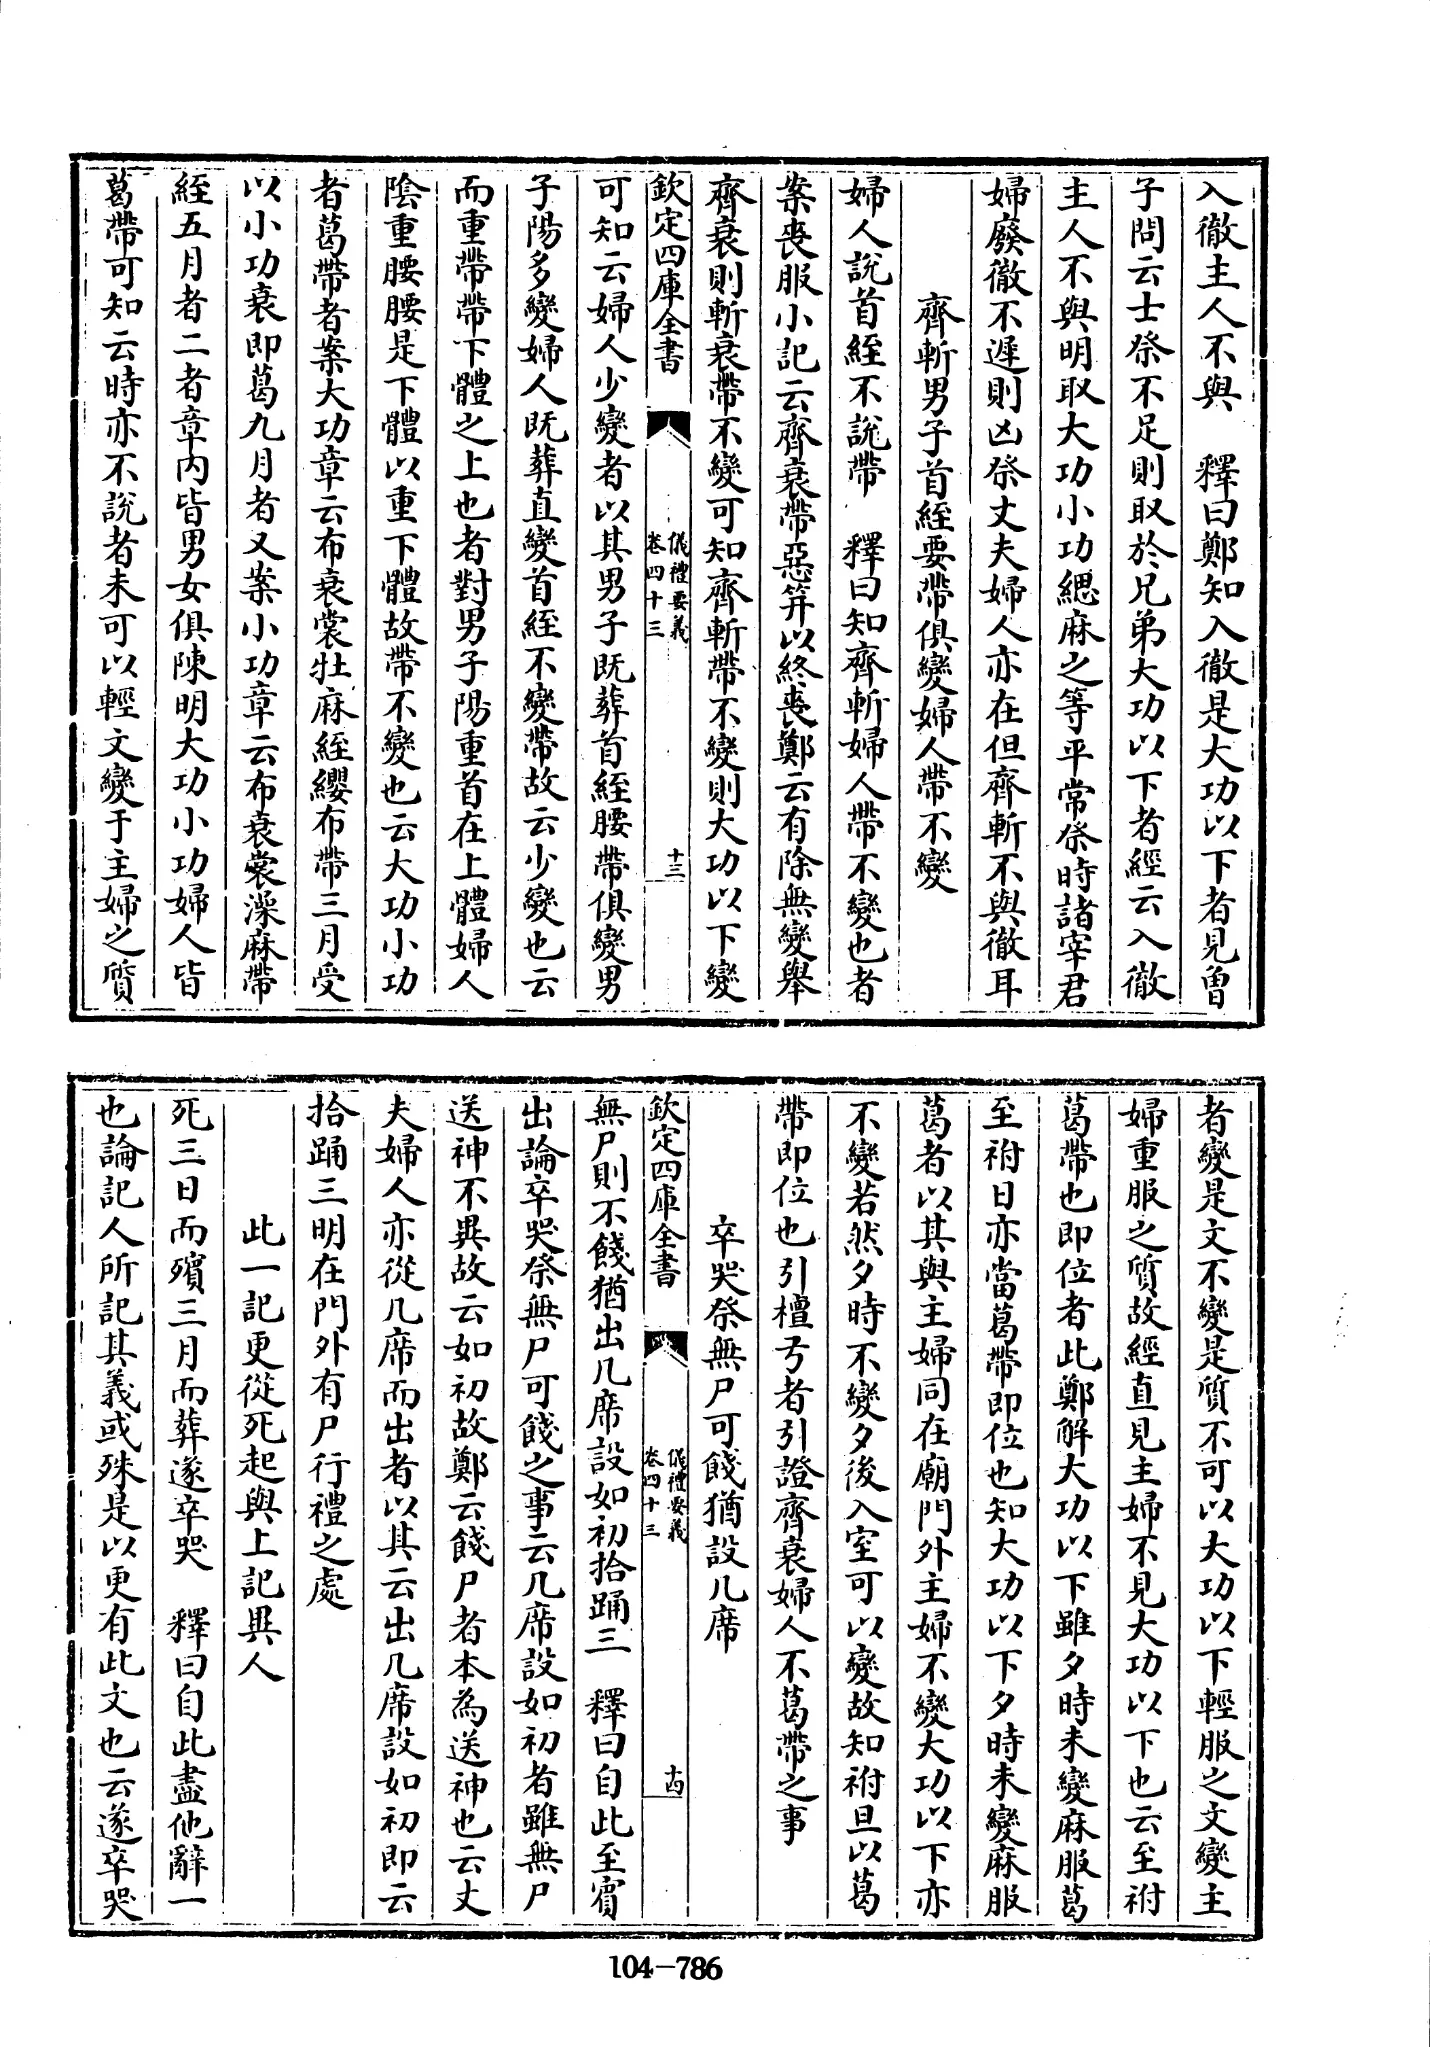 入徹主人不與　釋曰鄭知入徹是大功以下者見曽
子問云士祭不足則取於兄弟大功以下者經云入徹
主人不與明取大功小功緦麻之等平常祭時諸宰君
婦廢徹不遲則凶祭丈夫婦人亦在但齊斬不與徹耳
齊斬男子首絰要帶俱變婦人帶不變
婦人說首絰不說帶　釋曰知齊斬婦人帶不變也者
案喪服小記云齊衰帶惡笄以終喪鄭云有除無變舉
齊衰則斬衰帶不變可知齊斬帶不變則大功以下變
欽定四庫全書　儀禮要義　卷四十三　十三
可知云婦人少變者以其男子既葬首絰腰帶俱變男
子陽多變婦人既葬直變首絰不變帶故云少變也云
而重帶帶下體之上也者對男子陽重首在上體婦人
陰重腰腰是下體以重下體故帶不變也云大功小功
者葛帶者案大功章云布衰裳牡麻絰纓布帶三月受
以小功衰即葛九月者又案小功章云布衰裳澡麻帶
絰五月者二者章内皆男女俱陳明大功小功婦人皆
葛帶可知云時亦不說者未可以輕文變于主婦之質
者變是文不變是質不可以大功以下輕服之文變主
婦重服之質故經直見主婦不見大功以下也云至祔
葛帶也即位者此鄭解大功以下雖夕時未變麻服葛
至祔日亦當葛帶即位也知大功以下夕時未變麻服
葛者以其與主婦同在廟門外主婦不變大功以下亦
不變若然夕時不變夕後入室可以變故知祔旦以葛
帶即位也引檀弓者引證齊衰婦人不葛帶之事
卒哭祭無尸可餞猶設几席
欽定四庫全書　儀禮要義　卷四十三　十四
無尸則不餞猶出几席設如初拾踊三　釋曰自此至賔
出論卒哭祭無尸可餞之事云几席設如初者雖無尸
送神不異故云如初故鄭云餞尸者本為送神也云丈
夫婦人亦從几席而出者以其云出几席設如初即云
拾踊三明在門外有尸行禮之處
此一記更從死起與上記異人
死三日而殯三月而葬遂卒哭　釋曰自此盡他辭一
也論記人所記其義或殊是以更有此文也云遂卒哭
104-786